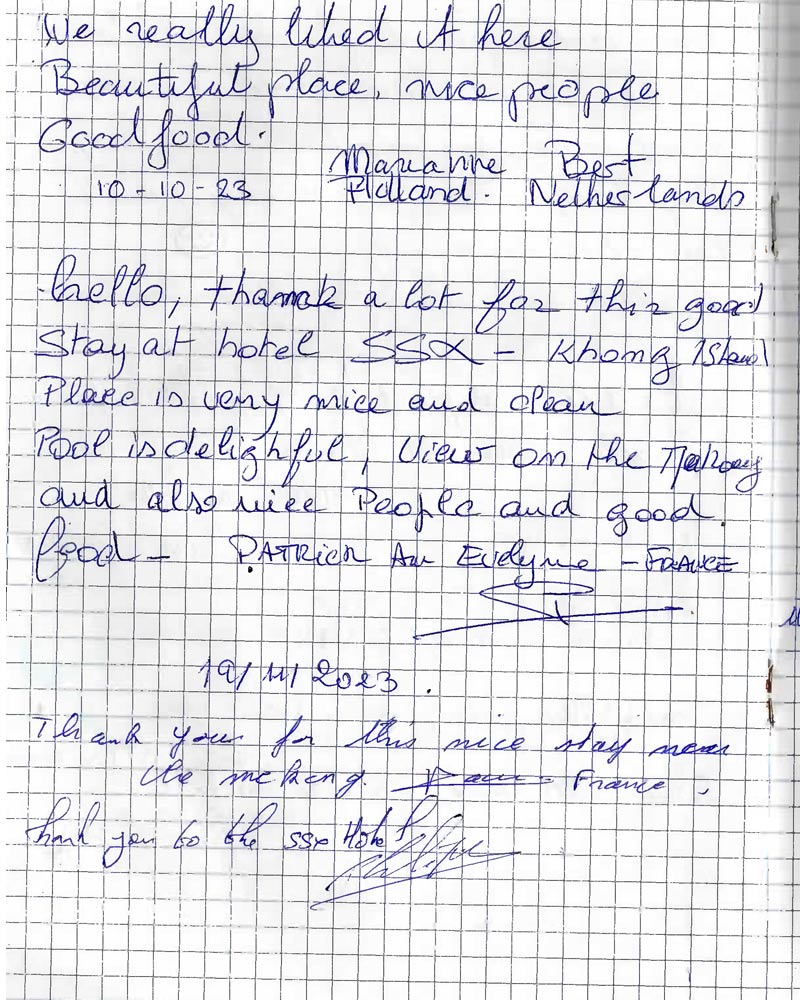 We really liked it here
Beautiful place, nice people
Good food.
Marianne Best
10-10-23 Holland. Netherlands
hello, thank a lot for this good
Stay at hotel SSX - Khong Island
Place is very nice and clean
Pool is delighful, View on the Mekong
and also nice People and good
food - PATRICK An Evelyne - FRANCE
19/11/2023.
Thank your for this nice stay near
the mekong. France.
Thank you to the SSX Hotel